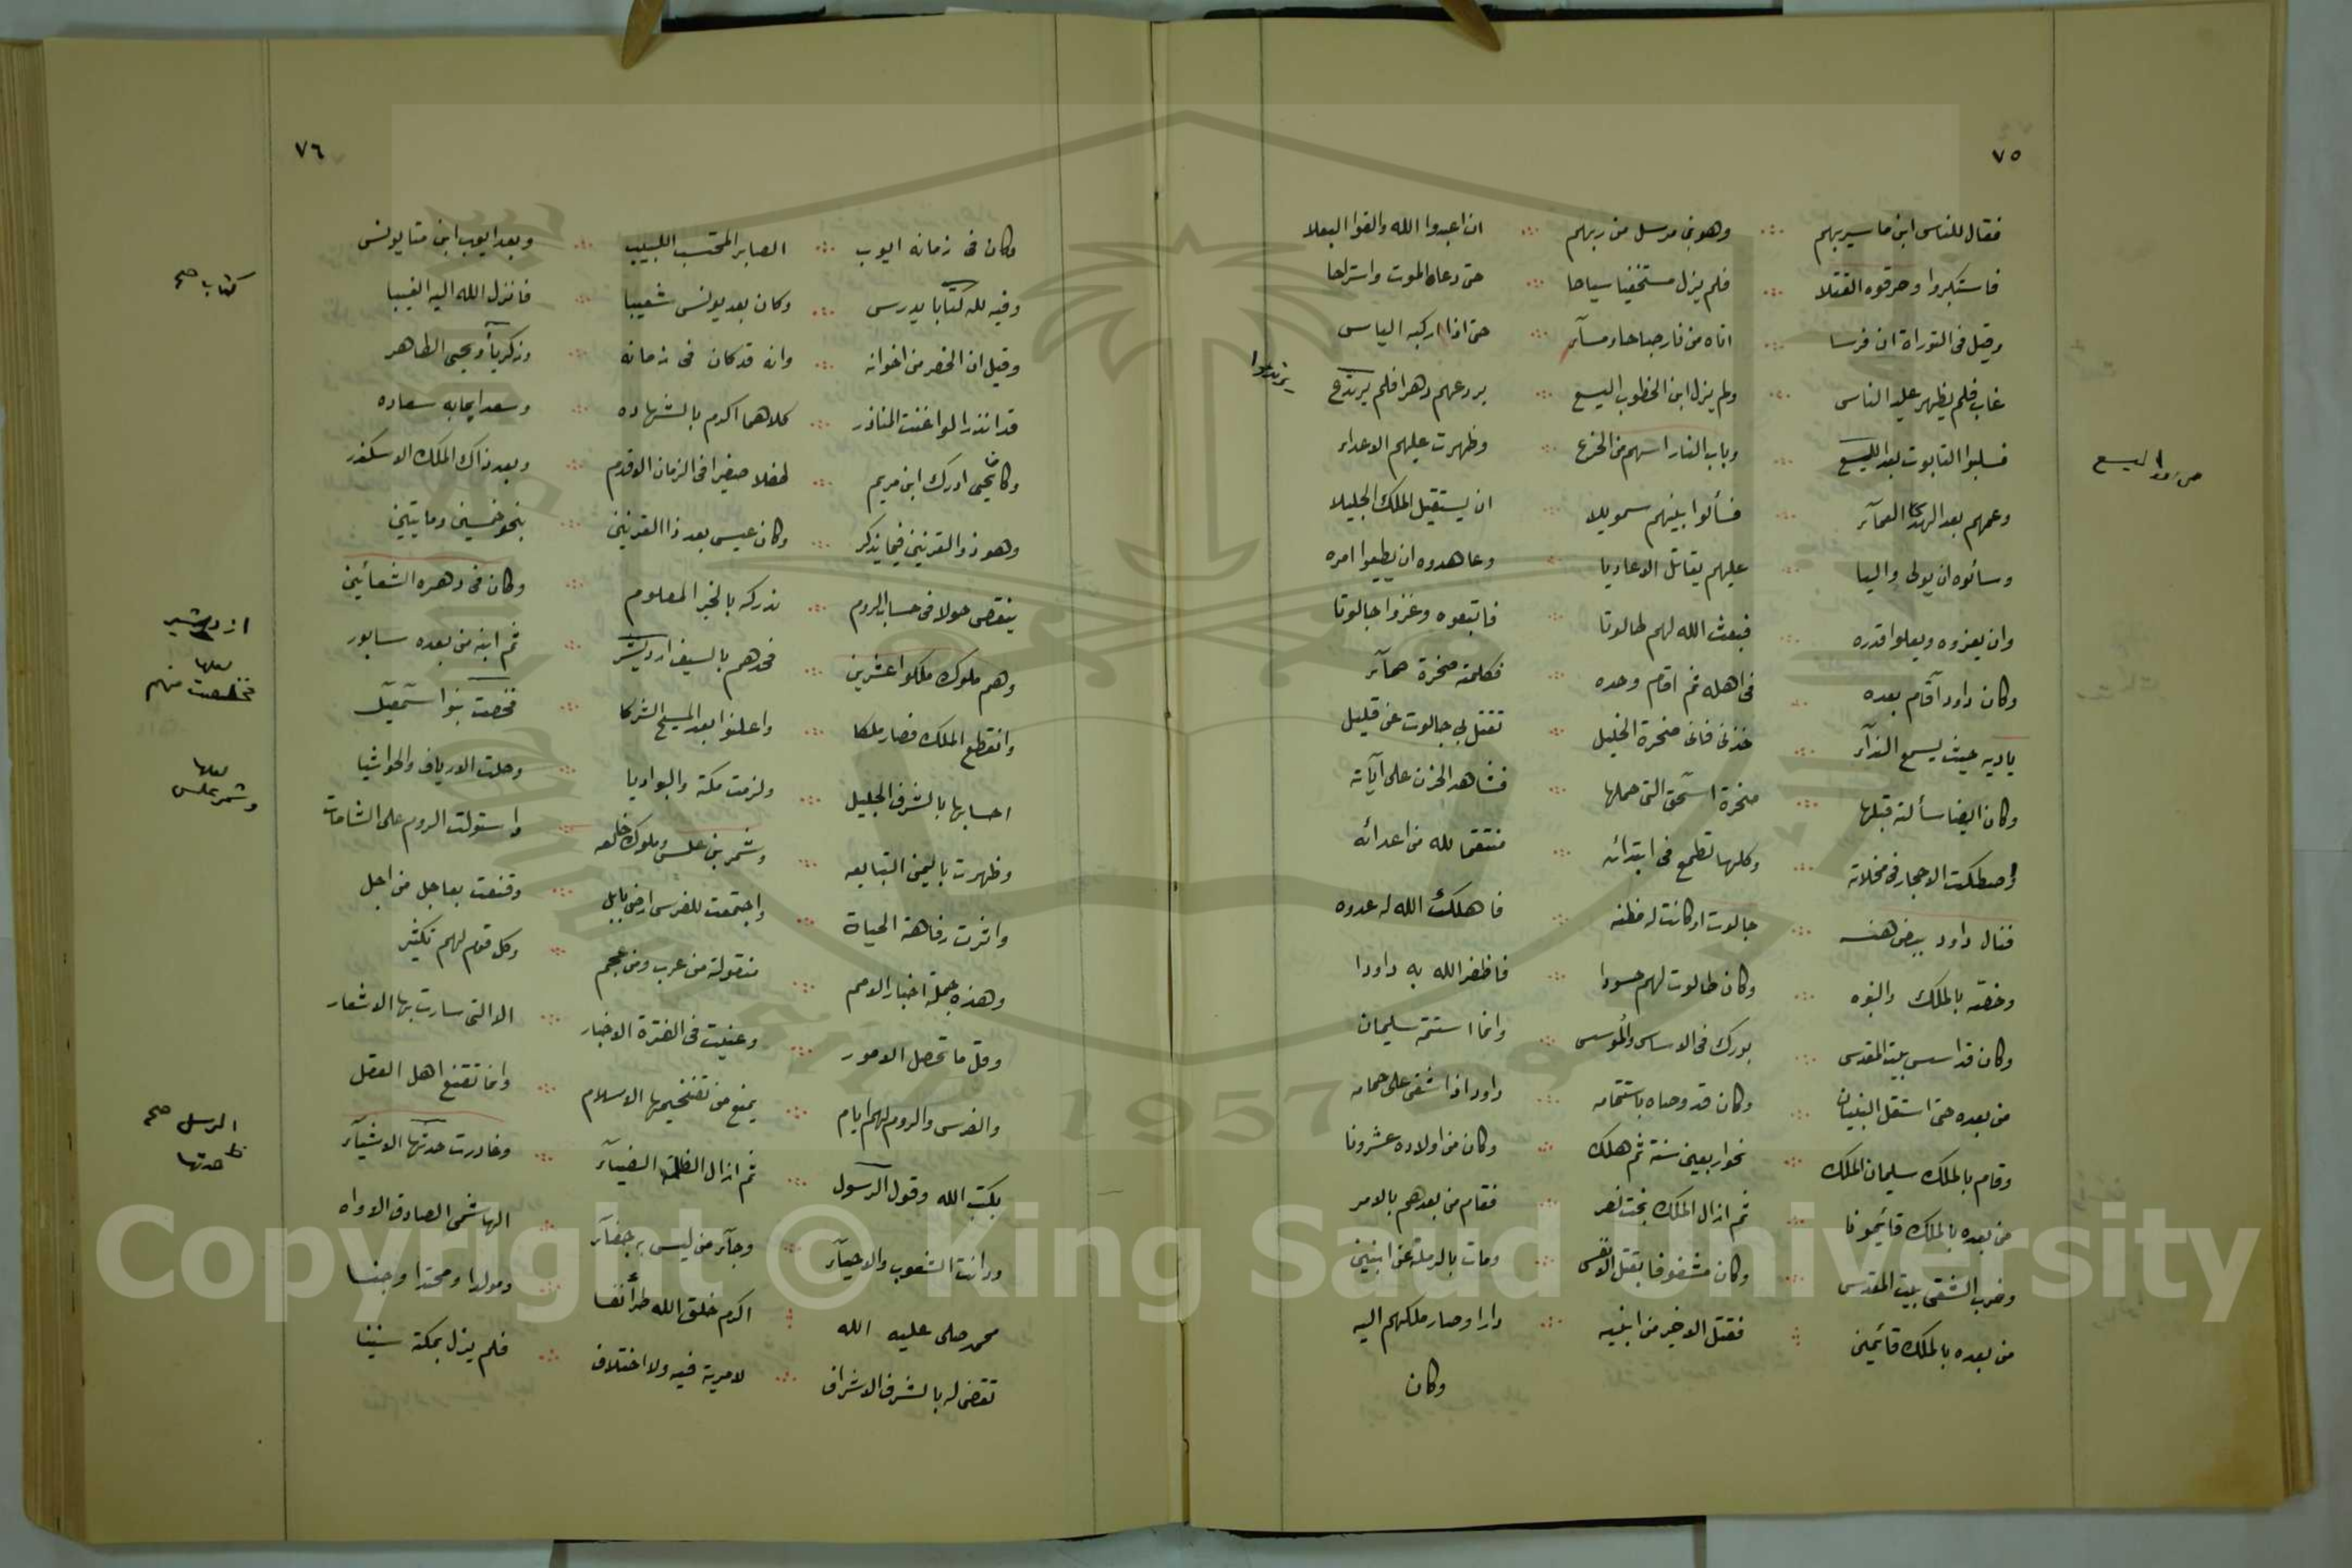 ٧٥
فقال للناس ابن ماسير بهم وهو بن مرسل من ربهم ان اعبدوا الله والقوا البعلا
فاستكبروا وحرقوه القتلا فلم يزل مستخفيا سياحا حتى دعاه الموت واستراحا
وقيل فى التوراة ان فرسا اتاه من نار حتى اذا اركبه الياس
غاب فلم يظهر عليه الناس ولم يزل ابن الخطوب اليسع يردعهم دهرا فلم يرتدع
يرتدعوا
فسلبوا التابوت بعد اليسع وباب النار اسهم من الخزع وظهرت عليهم الاعداء
اليسع
وعمهم بعد الهدى العمآء فسألوا بينهم سمويلا ان يستقيل الملك الجليلا
وسألوه ان يولى واليا عليهم يقاتل الاعاديا وعاهدوه ان يطيعوا امره
وان يعزوه ويعلوا قدره فبعث الله لهم طالوتا فاتبعوه وغزوا جالوتا
وكان داود آقام بعده فى اهله ثم اقام وحده فكلمته صخرة صمآء
ياديه حيث يسمع الندآء خذنى فانى صخرة الخليل تقتل بى جالوت عن قليل
وكان ايضا سألته قبلها صخرة اسحق التى حملها فشاهد الحزن على آياته
واصطكت الاحجار فى مخلاته وكلها تطمع فى ابتدائه منتقما لله من اعدائه
فنال داود ببعض هنه جالوت اذ كانت له مظنه فاهلك الله له عدوه
وخصه بالملك والنبوه وكان طالوت لهم حسودا فاظفر الله به داودا
وكان قد اسس بيت المقدس بورك فى الاساس والمؤسس وانما استتمه سليمان
من بعده حتى استقل البنيان وكان قد وصاه باستتمامه داود اذ اشفى على حمامه
وقام بالملك سليمان الملك نحو اربعين سنة ثم هلك وكان من اولاده عشرونا
من بعده بالملك قائمونا ثم ازال الملك بخت نصر فقام من بعدهم بالامر
وخرب الشقى بيت المقدس وكان مشغوفا بقتل الانفس ومات بالرملة عن ابنين
من بعده بالملك قائمين فقتل الاخير من ابنيه دارا وصار ملكهم اليه
وكان
٧٦
وكان فى زمانه ايوب الصابر المحتسب اللبيب وبعد ايوب ابن متا يونس
وفيه لله كتابا يدرس وكان بعد يونس شعيبا فانزل الله اليه الغيبا
كتاب صح
وقيل ان الخضر من اخوانه وانه قد كان فى زمانه وزكريآ ويحيى الطاهر
قد انذرا لو اغنت المناذر كلاهما اكرم بالشهاده وسعد ايحابه سعاده
وكان يحيى ادرك ابن مريم طفلا صغيرا فى الزمان الاقدم وبعد ذاك الملك الاسكندر
وهو ذو القرنين فيما يذكر وكان عيسى بعد ذا القرنين بنحو خمسين ومايتين
ينقص حولا فى حساب الروم ندركه بالخبر المعلوم وكان فى دهره الشغائين
وهم ملوك ملكوا عشرين فجذهم بالسيف اردشير ثم ابنه من بعده سابور
ازدشير
وانقطع الملك فصار ملكا واعلنوا بعد المسيح الشركا فخصت بنوا اسمعيل
لعلها
منهم
احسابها بالشرف الجليل ولزمت مكة والبواديا وحلت الارياف والحواشيا
وظهرت باليمن التبابعه وشمر بن علس وملوك خلعه واستولت الروم على الشامات
لعلها
وشمر علس
واثرت رفاهة الحياة واجتمعت للفرس ارض بابل وقنعت بعاجل من اجل
وهذه جملة اخبار الامم منقولة من عرب ومن عجم وكل قوم لهم تكثير
وقل ما تحصل الامور وعنيت فى الفترة الاخبار الا التى سارت بها الاشعار
والفرس والروم لهم ايام يمنع من تفخيمها الاسلام وانما تقنع اهل العقل
بكتب الله وقول الرسول ثم ازال الظلمة الضيآء وغادرت حدتها الاشيآء
الرسل صح
ظ حدتها
ودانت الشعوب والاحيآء وجآء من ليس به خفآء الهاشمى الصادق الاواه
محمد صلى عليه الله اكرم خلق الله طرا نفسا ومولدا ومحتدا وجنسا
تقضى له بالشرف الاشراف لا مرية فيه ولا اختلاف فلم يزل بمكة سنينا
Copyright © King Saud University
1957